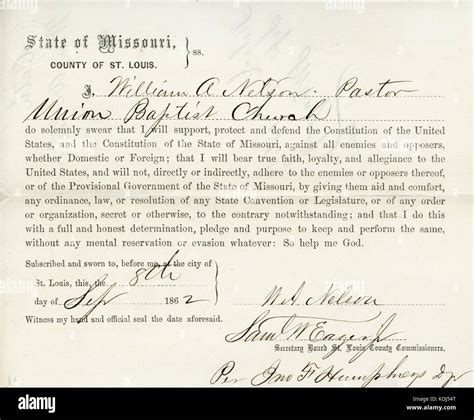 State of Missouri,
COUNTY OF ST. LOUIS. } ss.
I, William A Nelson Pastor
Union Baptist Church
do solemnly swear that I will support, protect and defend the Constitution of the United
States, and the Constitution of the State of Missouri, against all enemies and opposers,
whether Domestic or Foreign; that I will bear true faith, loyalty, and allegiance to the
United States, and will not, directly or indirectly, adhere to the enemies or opposers thereof,
or of the Provisional Government of the State of Missouri, by giving them aid and comfort,
any ordinance, law, or resolution of any State Convention or Legislature, or of any order
or organization, secret or otherwise, to the contrary notwithstanding; and that I do this
with a full and honest determination, pledge and purpose to keep and perform the same,
without any mental reservation or evasion whatever: So help me God.
Subscribed and sworn to, before me, at the city of
St. Louis, this, the 8th
day of Sep 1862
W A Nelson
Witness my hand and official seal the date aforesaid.
Sam W Eager Jr
Secretary Board St. Louis County Commissioners.
Per Jno F Humphreys Dp
alamy
Image ID: KDJ54T
www.alamy.com